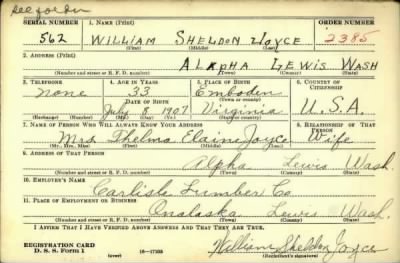 SERIAL NUMBER 1. NAME (Print) ORDER NUMBER
562 WILLIAM SHELDON JOYCE 2385
(First) (Middle) (Last)
2. ADDRESS (Print)
ALPHA LEWIS WASH
(Number and street or R. F. D. number) (Town) (County) (State)
3. TELEPHONE 4. AGE IN YEARS 5. PLACE OF BIRTH 6. COUNTRY OF CITIZENSHIP
none 33 Emboden
DATE OF BIRTH (Town or county)
July 8 1907 Virginia U.S.A.
(Exchange) (Number) (Mo.) (Day) (Yr.) (State or country)
7. NAME OF PERSON WHO WILL ALWAYS KNOW YOUR ADDRESS 8. RELATIONSHIP OF THAT PERSON
Mrs Thelma Elaine Joyce Wife
(Mr., Mrs., Miss) (First) (Middle) (Last)
9. ADDRESS OF THAT PERSON
Alpha Lewis Wash.
(Number and street or R. F. D. number) (Town) (County) (State)
10. EMPLOYER'S NAME
Carlisle Lumber Co
11. PLACE OF EMPLOYMENT OR BUSINESS
Onalaska Lewis Wash.
(Number and street or R. F. D. number) (Town) (County) (State)
I AFFIRM THAT I HAVE VERIFIED ABOVE ANSWERS AND THAT THEY ARE TRUE.
REGISTRATION CARD
D. S. S. Form 1 (over) 16—17105 William Sheldon Joyce
(Registrant's signature)